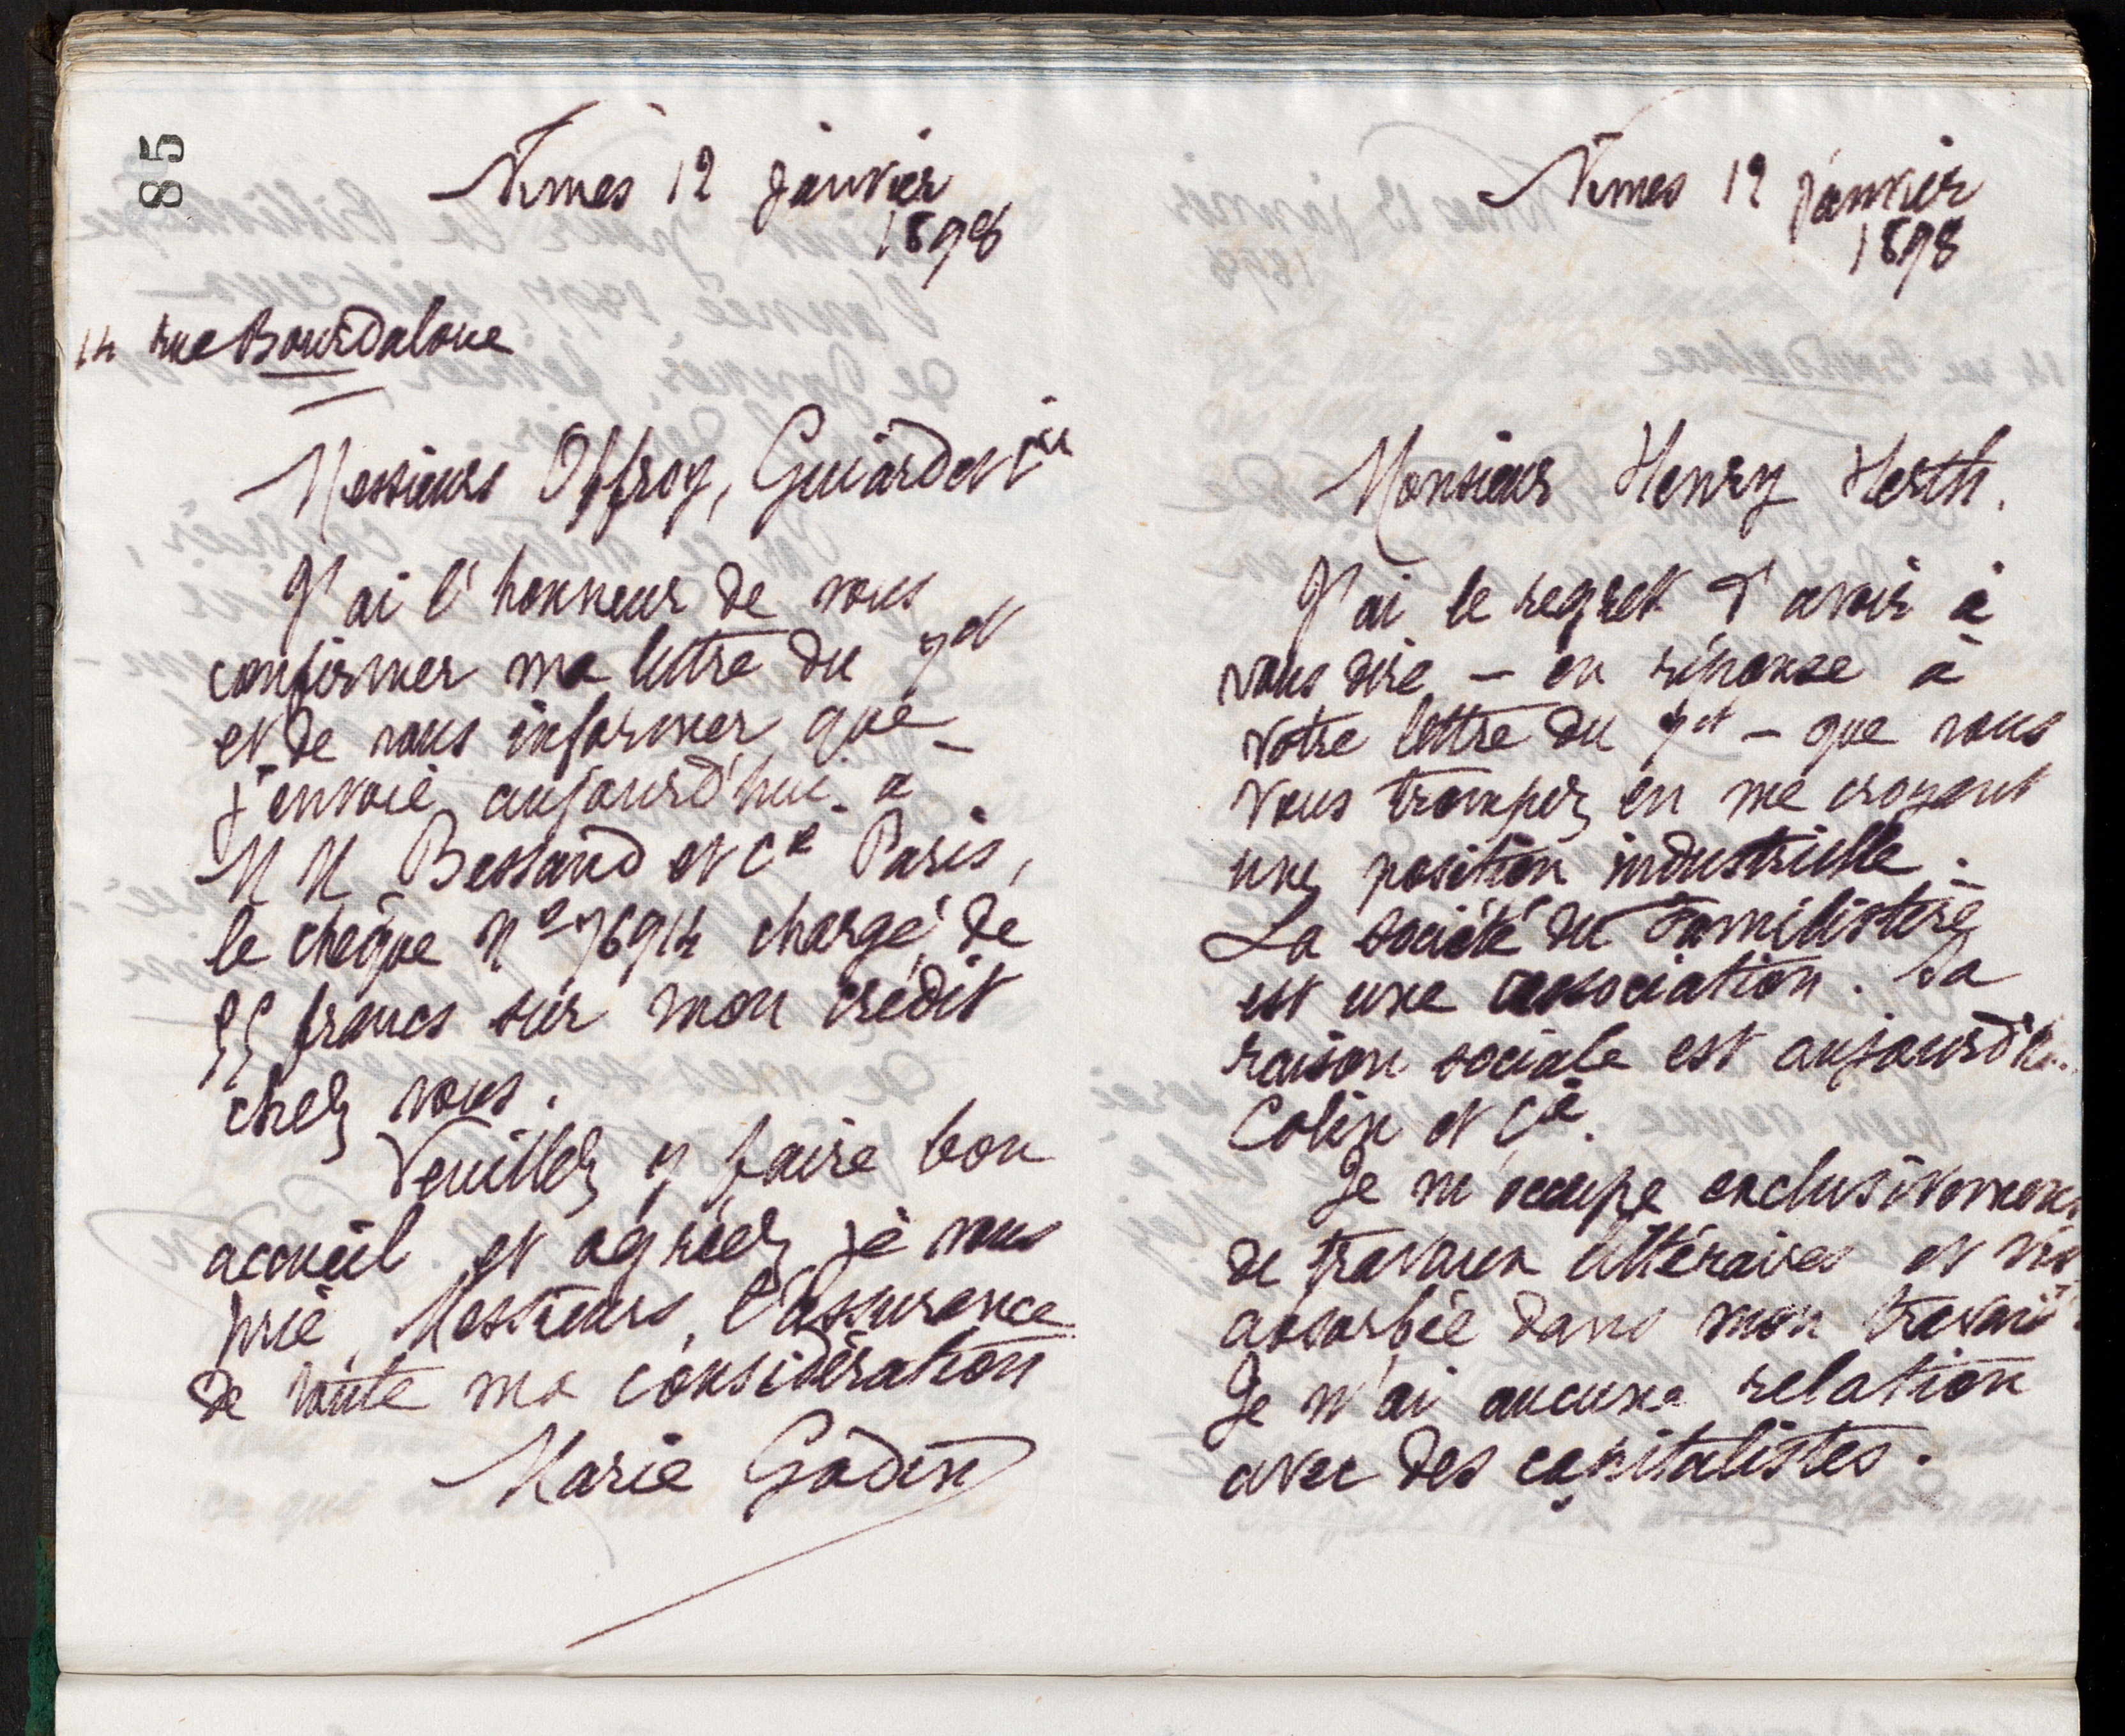 85
Nimes 12 janvier
1898
14 rue Bourdaloue
Messieurs Offroy, Guiard et Cie
J'ai l'honneur de vous
confirmer ma lettre du 7 ct
et de vous informer que
j'envoie aujourd'hui à
MM Bessand et Cie Paris,
le chèque No 76914 chargé de
55 francs sur mon crédit
chez vous.
Veuillez y faire bon
accueil et agréez, je vous
prie, Messieurs, l'assurance
de toute ma considération
Marie Godin
Nimes 12 janvier
1898
Monsieur Henry Herth.
J'ai le regret d'avoir à
vous dire – en réponse à
votre lettre du 7 ct – que vous
vous trompez en me croyant
une position industrielle.
La société du Familistère
est une association. Sa
raison sociale est aujourd'hui
Colin et Cie.
Je m'occupe exclusivement
de travaux littéraires et
absorbée dans mon travail
Je n'ai aucune relation
avec des capitalistes.